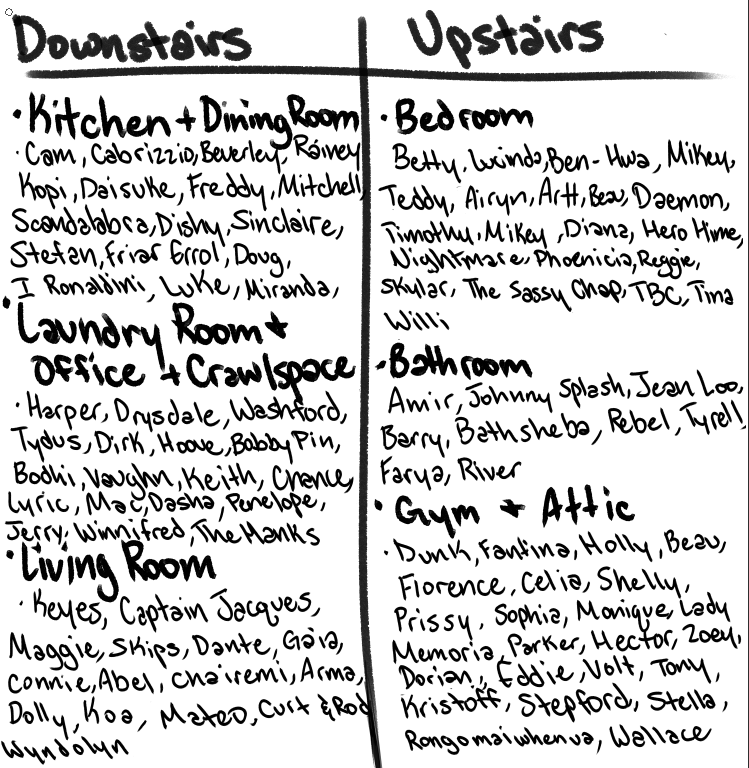 Downstairs
· Kitchen + Dining Room
· Cam, Cabrizzio, Beverley, Rainey
Kopi, Daisuke, Freddy, Mitchell,
Scandalabra, Dishy, Sinclaire,
Stefan, Friar Errol, Doug,
I Ronaldini, Luke, Miranda,
· Laundry Room +
Office + Crawlspace
· Harper, Drysdale, Washford,
Tydus, Dirk, Hoove, Bobby Pin,
Bodhi, Vaughn, Keith, Chance,
Lyric, Mac, Dasha, Penelope,
Jerry, Winnifred, The Hanks
· Living Room
· Keyes, Captain Jacques,
Maggie, Skips, Dante, Gaia,
Connie, Abel, Chairemi, Arma,
Dolly, Koa, Mateo, Curt & Rod
Wyndolyn
Upstairs
· Bedroom
Betty, Lucinda, Ben-Hwa, Mikey,
Teddy, Airyn, Artt, Beau, Daemon,
Timothy, Mikey, Diana, Hero Hime,
Nightmare, Phoenicia, Reggie,
Skylar, The Sassy Chap, TBC, Tina
Willi
· Bathroom
Amir, Johnny Splash, Jean Loo,
Barry, Bathsheba, Rebel, Tyrell,
Farya, River
· Gym + Attic
· Dunk, Fantina, Holly, Beau,
Florence, Celia, Shelly,
Prissy, Sophia, Monique, Lady
Memoria, Parker, Hector, Zoey,
Dorian, Eddie, Volt, Tony,
Kristoff, Stepford, Stella,
Rongomaiwhenua, Wallace